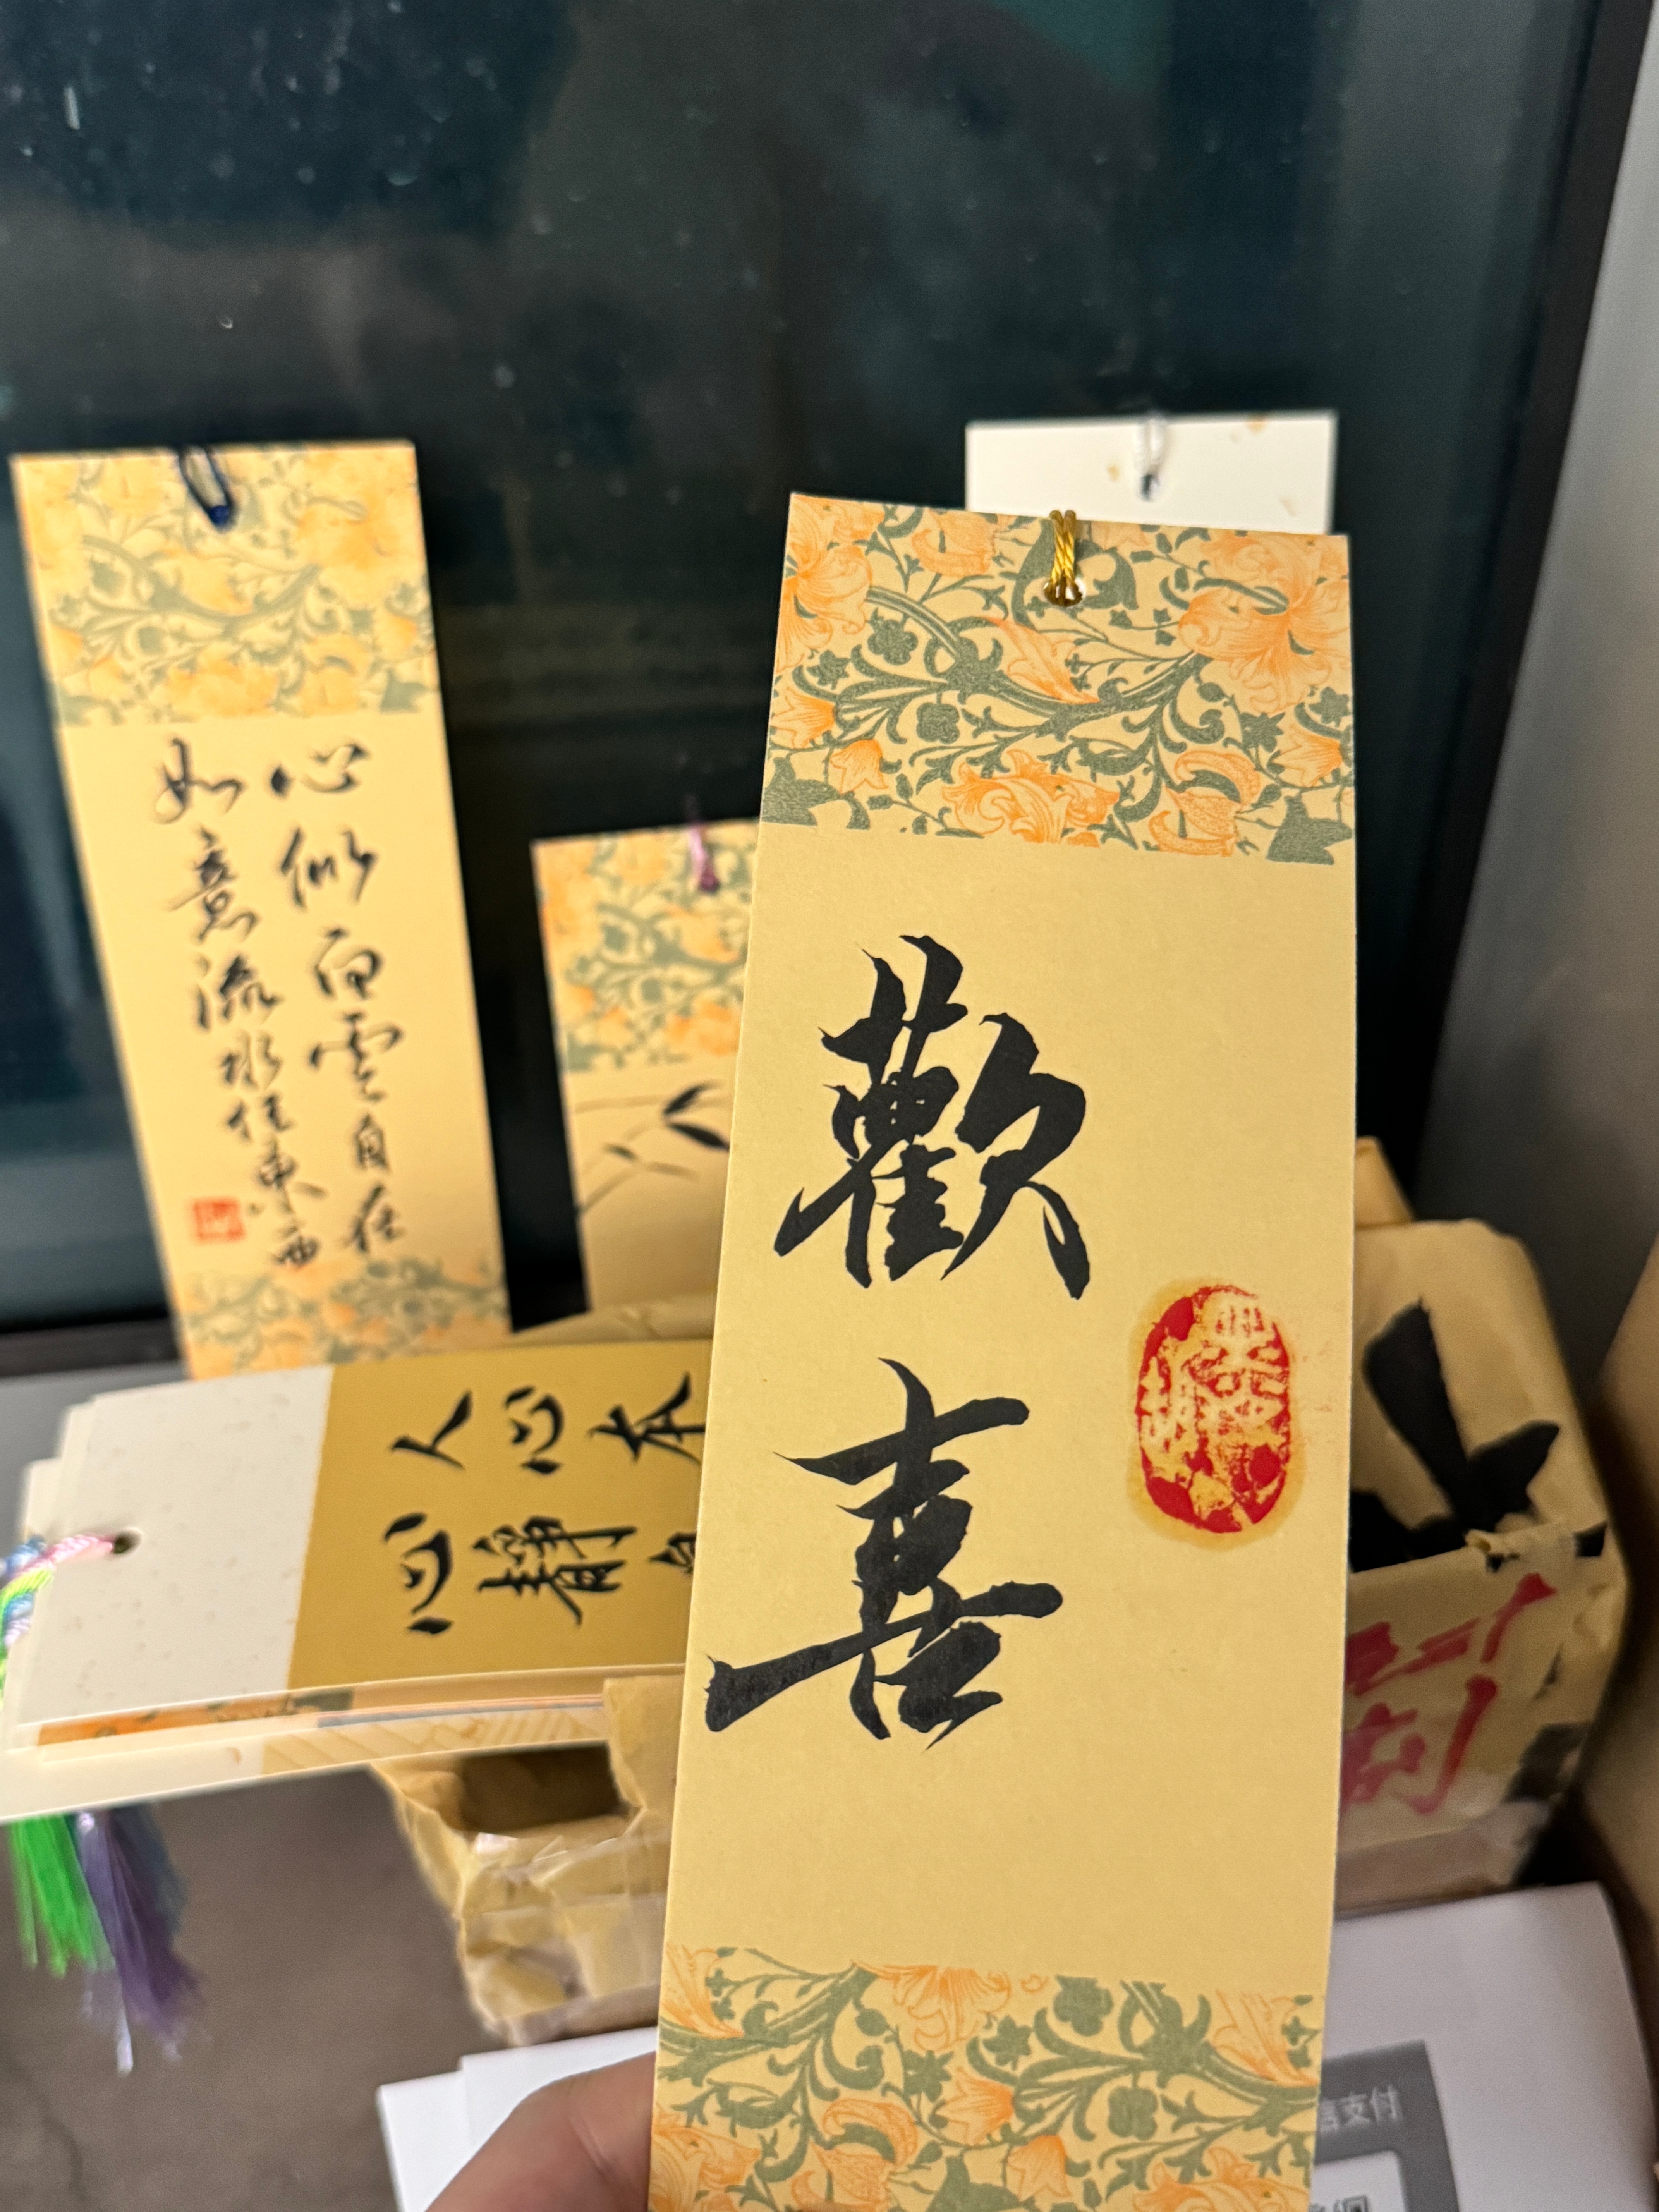 歡喜
心似白雲自在
如意流水任東西
人心本
心靜自
信支付